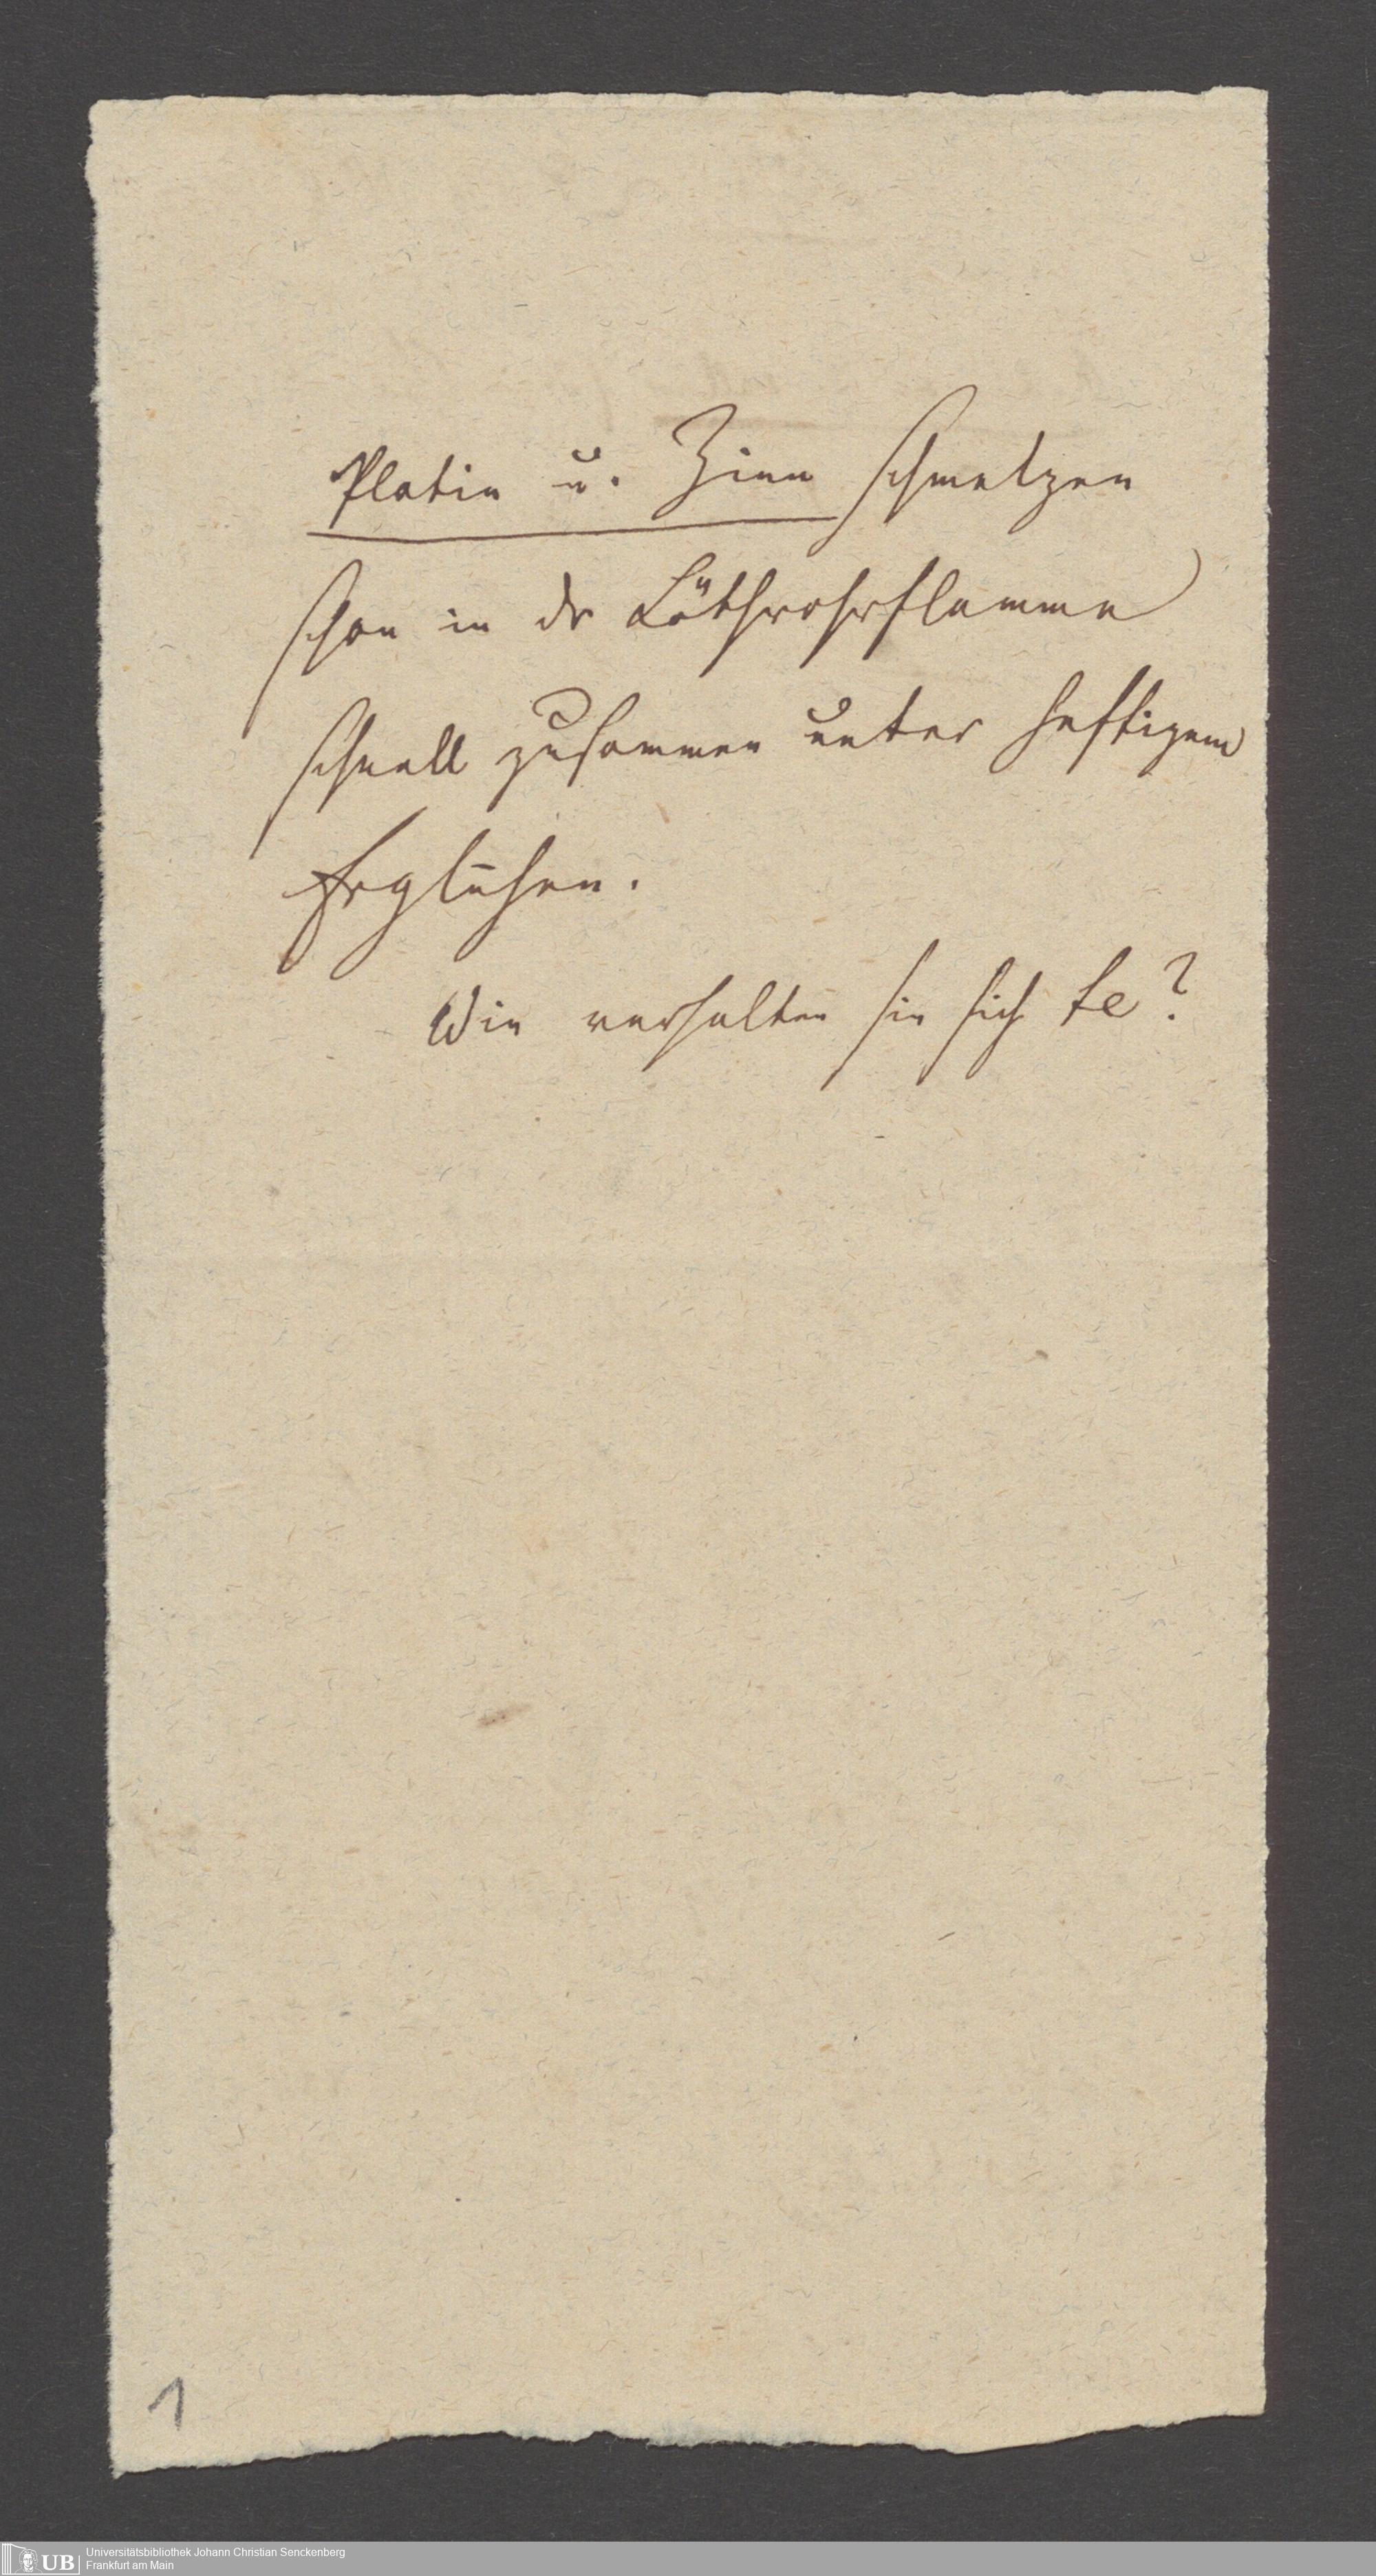 Platin u. Zinn schmelzen
schon in dr Löthrohrflamme
schnell zusammen unter heftigem
Erglühen.
Wie verhalten sie sich te?
1
UB Universitätsbibliothek Johann Christian Senckenberg
Frankfurt am Main